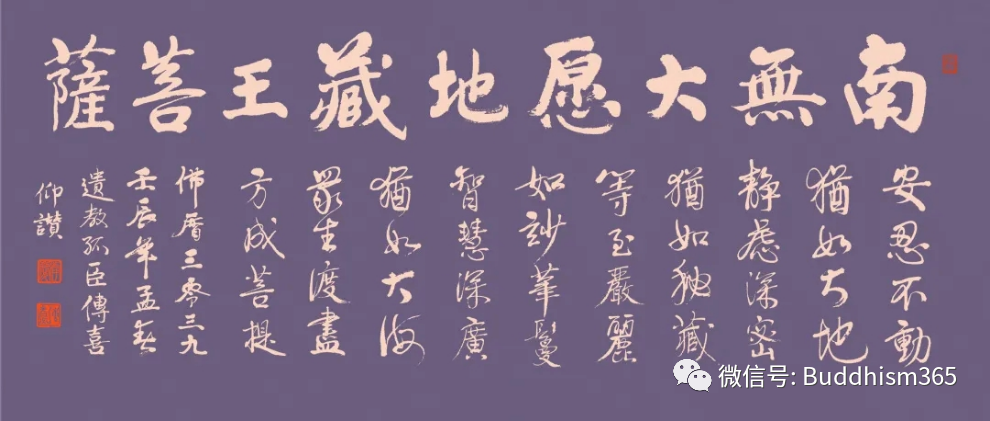 南無大愿地藏王菩薩
安忍不動
猶如大地
静慮深密
猶如秘藏
等至嚴麗
如妙華鬘
智慧深廣
猶如大海
眾生渡盡
方成菩提
佛曆三零三九
壬辰年孟春
遺教孤臣傳喜
仰讚
微信号: Buddhism365